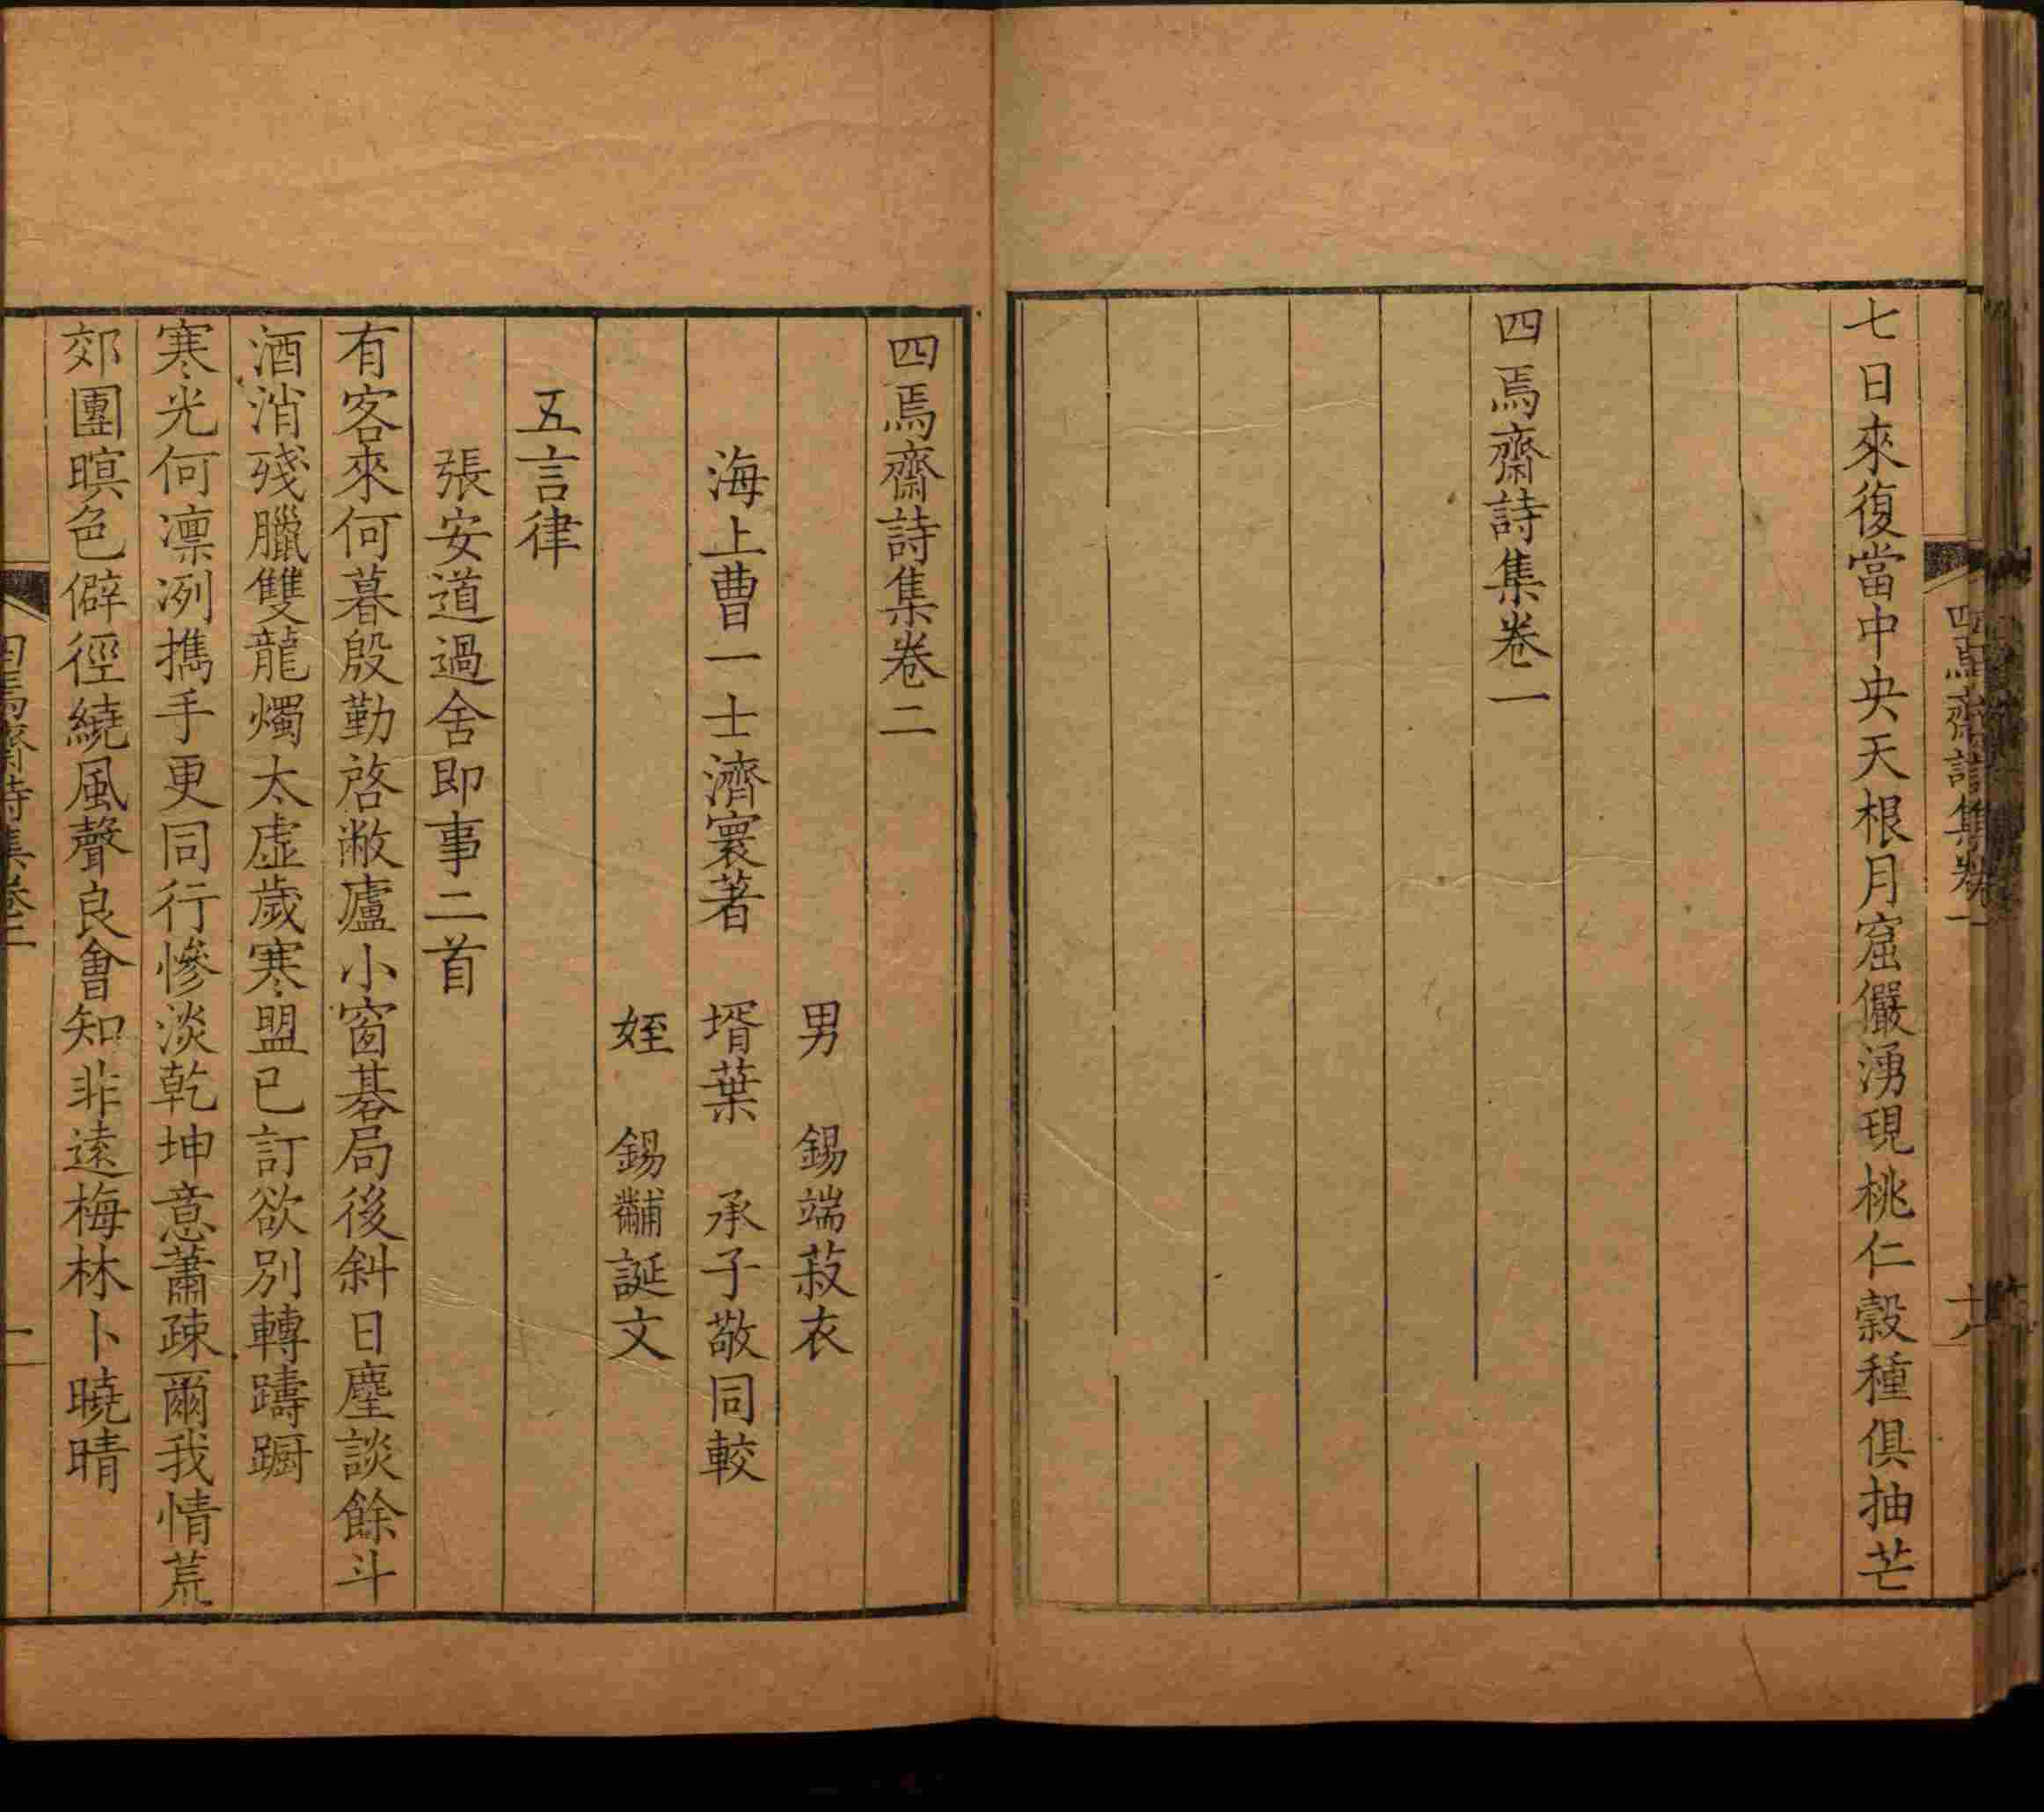 四焉齋詩集卷一
十八
七日來復當中央天根月窟儼湧現桃仁穀種俱抽芒
四焉齋詩集卷一
四焉齋詩集卷二
男　錫端菽衣
海上曹一士濟寰著　壻葉　承子敬同較
姪　錫黼誕文
五言律
張安道過舍即事二首
有客來何暮殷勤啓敝廬小窗碁局後斜日麈談餘斗
酒消殘臘雙龍燭太虛歲寒盟已訂欲別轉躊躕
寒光何凛冽攜手更同行慘淡乾坤意蕭疎爾我情荒
郊團暝色僻徑繞風聲良會知非遠梅林卜曉晴
四焉齋詩集卷二
一